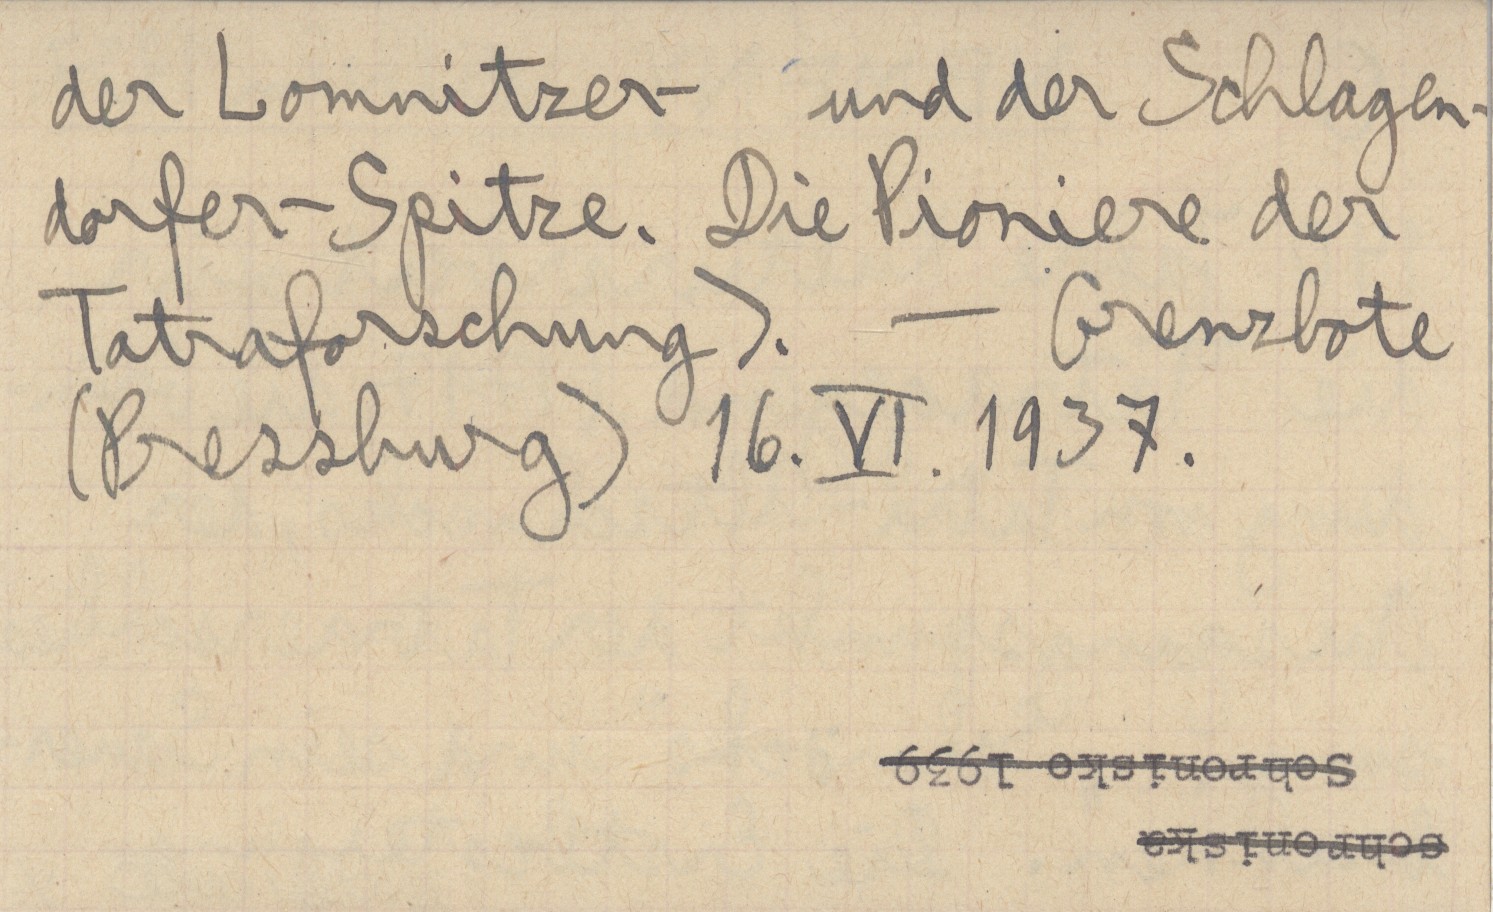 der Lomnitzer- und der Schlagen-
dorfer-Spitze. Die Pioniere der
Tatraforschung>. — Grenzbote
(Pressburg) 16. VI. 1937.
Schronisko 1939
schroniska